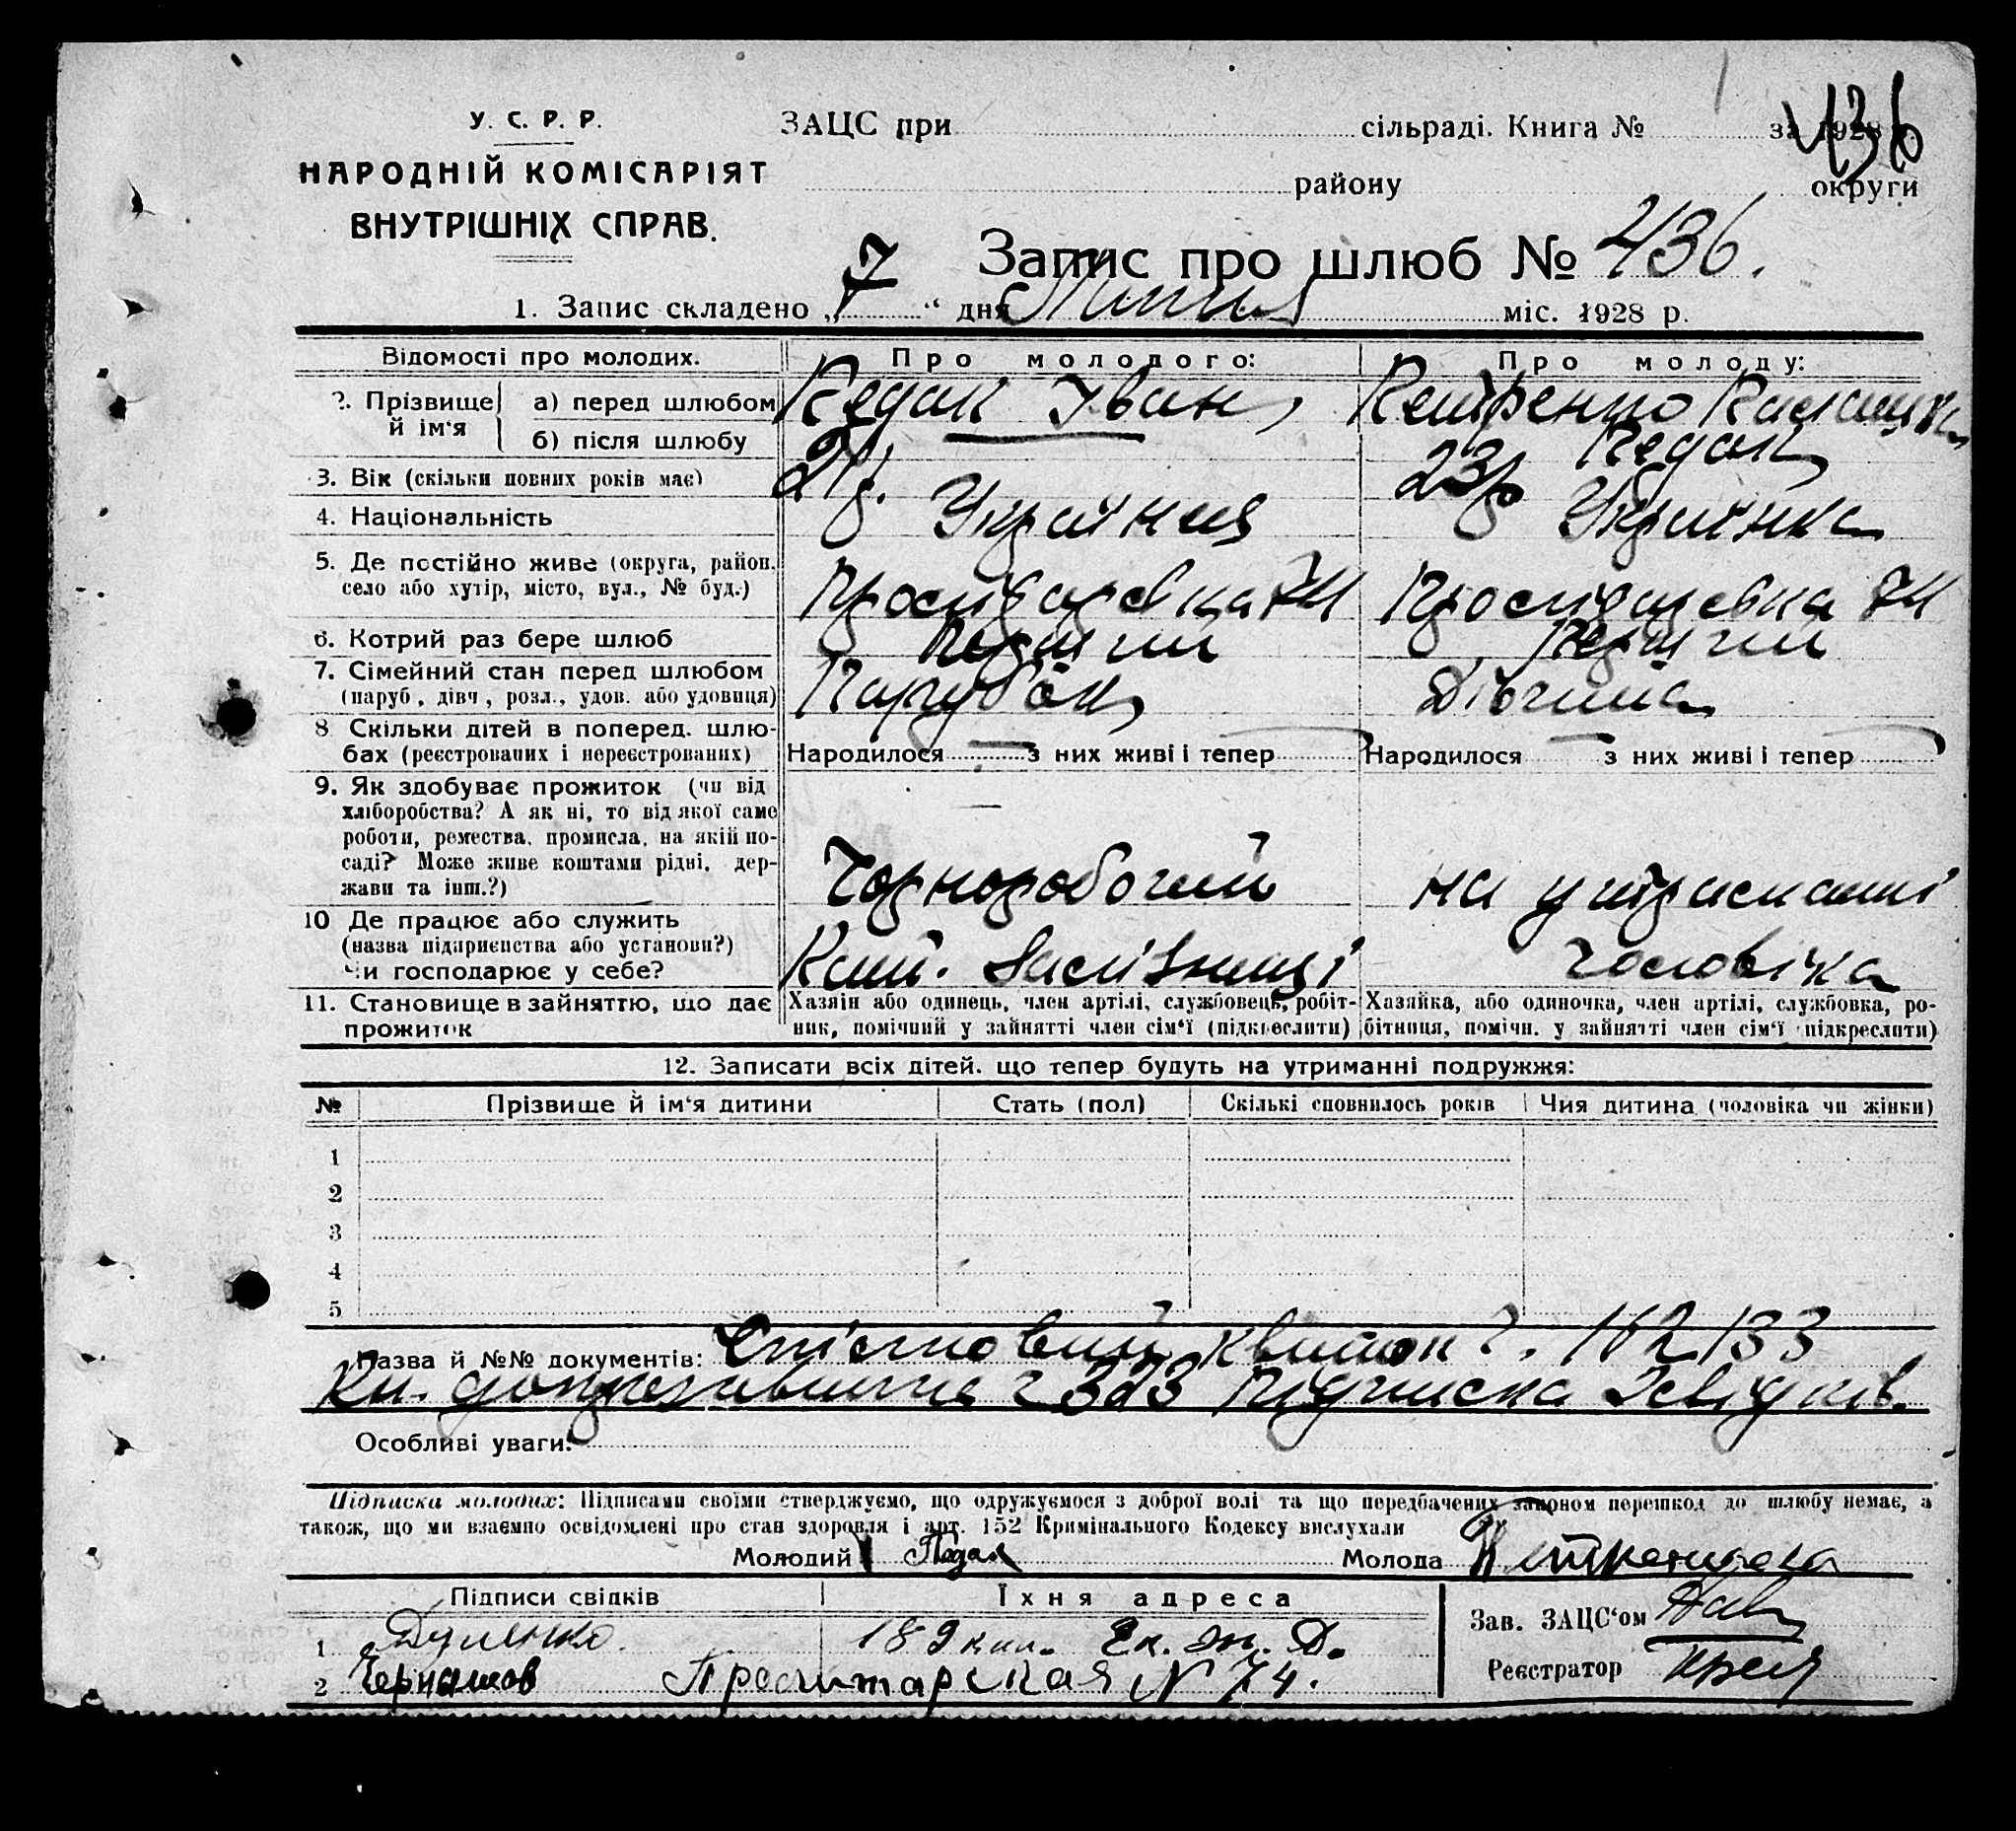 436
У. С. Р. Р.
НАРОДНІЙ КОМІСАРІЯТ
ВНУТРІШНІХ СПРАВ.
ЗАЦС при сільраді. Книга № за 1928 р.
району округи
Запис про шлюб № 436.
1. Запис складено „7“ дня Липня міс. 1928 р.
Відомості про молодих. Про молодого: Про молоду:
2. Прізвище й ім‘я
а) перед шлюбом Педак Іван
б) після шлюбу Педак
3. Вік (скільки повних років має) 21 р. 23 р.
4. Національність Українец Українка
5. Де постійно живе (округа, район, село або хутір, місто, вул., № буд.) 74 74
6. Котрий раз бере шлюб Перший Перший
7. Сімейний стан перед шлюбом (паруб., дівч., розл., удов. або удовиця) Парубок Дівчина
8 Скільки дітей в поперед. шлюбах (реєстрованих і нереєстрованих) Народилося — з них живі і тепер — Народилося — з них живі і тепер —
9. Як здобуває прожиток (чи від хліборобства? А як ні, то від якої саме роботи, ремества, промисла, на якій посаді? Може живе коштами рідні, держави та інш.?) Чорноробочий на утриманні
10 Де працює або служить (назва підприєнства або установи?) Чи господарює у себе? Залізниці чоловіка
11. Становище в зайняттю, що дає прожиток
Хазяін або одинець, член артілі, службовець, робітник, помічний у зайнятті член сім‘ї (підкреслити)
Хазяйка, або одиночка, член артілі, службовка, робітниця, помічн. у зайнятті член сім‘ї (підкреслити)
12. Записати всіх дітей. що тепер будуть на утриманні подружжя:
№ Прізвище й ім‘я дитини Стать (пол) Скількі сповнилось років Чия дитина (чоловіка чи жінки)
1
2
3
4
5
Назва й №№ документів: квиток
підписка свідків.
Особливі уваги:
Підписка молодих: Підписами своїми стверджуємо, що одружуємося з доброї волі та що передбачених законом перешкод до шлюбу немає, а
також, що ми взаємно освідомлені про стан здоровля і арт. 152 Кримінального Кодексу вислухали
Молодий Педак Молода
Підписи свідків Їхня адреса
Зав. ЗАЦС‘ом
1 Ек. ж. Д.
Реєстратор
2 Пролитарская N 74.